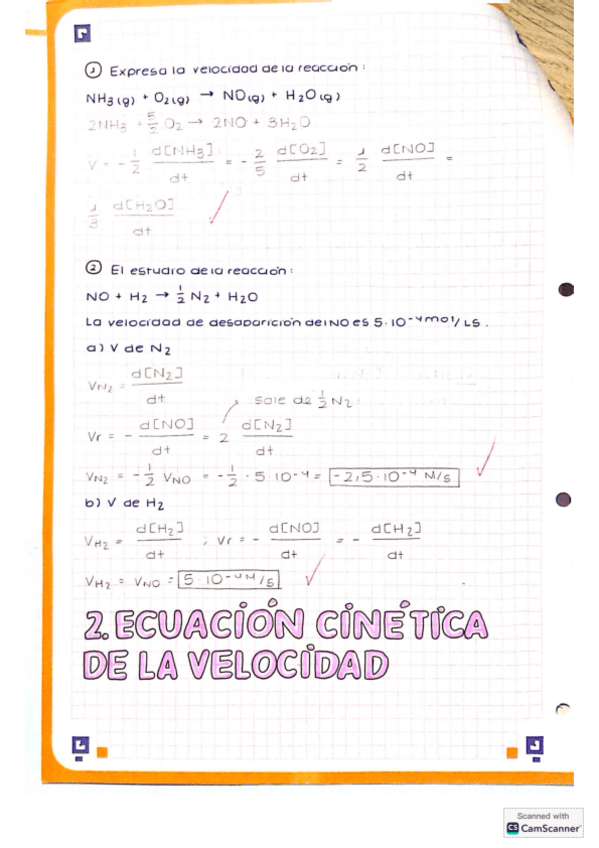 ① Expresa la velocidad de la reacción:
NH₃(g) + O₂(g) → NO(g) + H₂O(g)
2NH₃ + 5/2 O₂ → 2NO + 3H₂O
V = - 1/2 d[NH₃]/dt = - 2/5 d[O₂]/dt = 1/2 d[NO]/dt =
1/3 d[H₂O]/dt ✓
② El estudio de la reacción:
NO + H₂ → 1/2 N₂ + H₂O
La velocidad de desaparición del NO es 5·10⁻⁴ mol/LS.
a) V de N₂
V_N₂ = d[N₂]/dt
sale de 1/2 N₂
Vr = - d[NO]/dt = 2 d[N₂]/dt
V_N₂ = - 1/2 V_NO = - 1/2 · 5·10⁻⁴ = -2,5·10⁻⁴ M/s ✓
b) V de H₂
V_H₂ = d[H₂]/dt ; Vr = - d[NO]/dt = - d[H₂]/dt
V_H₂ = V_NO = 5·10⁻⁴ M/s ✓
2. ECUACIÓN CINÉTICA
DE LA VELOCIDAD
Scanned with
CS CamScanner